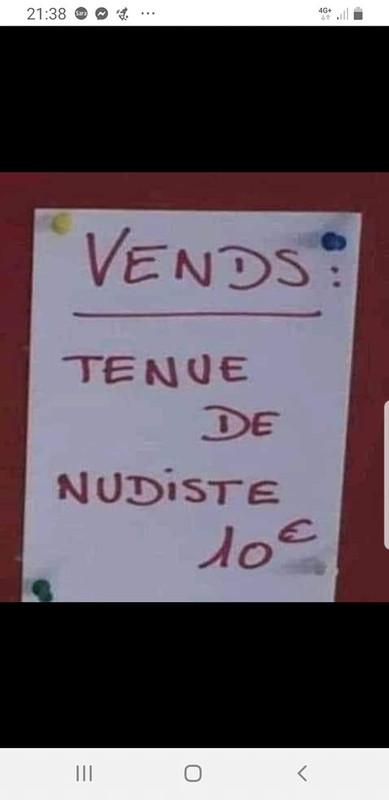 21:38 Sara 4G+
VENDS:
TENUE
DE
NUDiSTE
10€